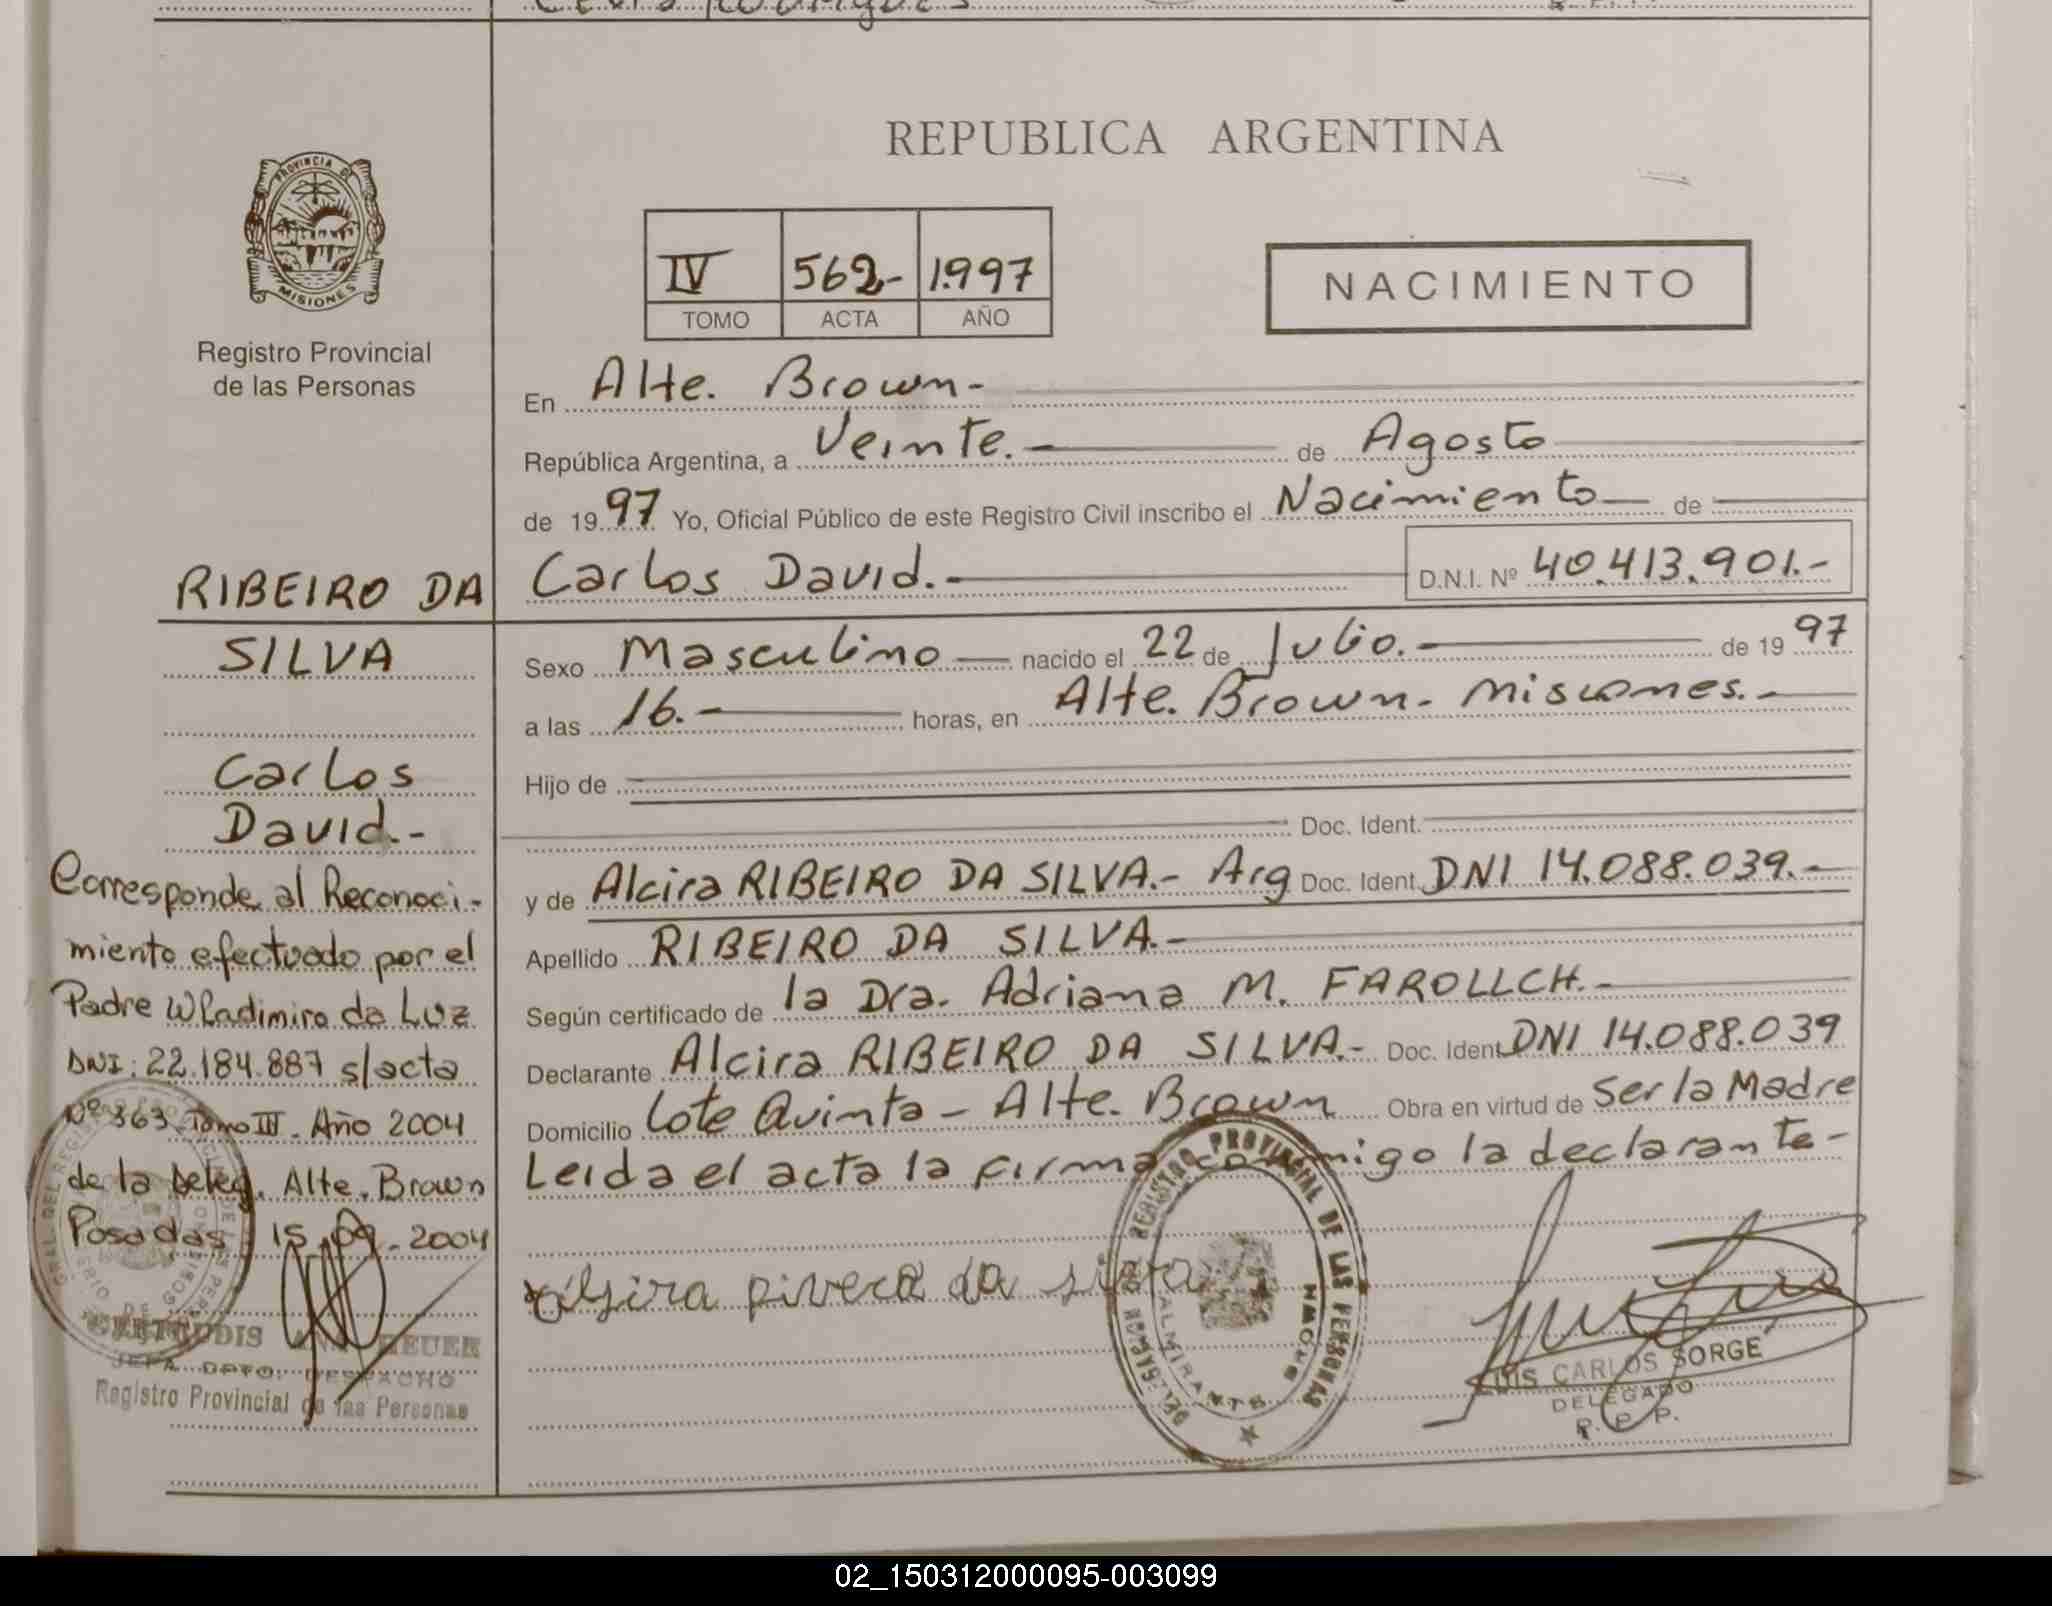 REPUBLICA ARGENTINA
PROVINCIA DE
MISIONES
Registro Provincial
de las Personas
IV 562- 1.997
TOMO ACTA AÑO
NACIMIENTO
En Alte. Brown-
República Argentina, a Veinte.- de Agosto
de 1997 Yo, Oficial Público de este Registro Civil inscribo el Nacimiento de
Carlos David.- D.N.I. Nº 40.413.901.-
Sexo Masculino nacido el 22 de Julio. de 19 97
a las 16.- horas, en Alte. Brown- Misiones.-
Hijo de
Doc. Ident.
y de Alcira RIBEIRO DA SILVA.- Arg Doc. Ident. DNI 14.088.039.-
Apellido RIBEIRO DA SILVA.-
Según certificado de la Dra. Adriana M. FAROLLCH.-
Declarante Alcira RIBEIRO DA SILVA.- Doc. Ident. DNI 14.088.039
Domicilio Lote Quinta - Alte. Brown Obra en virtud de Ser la Madre
Leida el acta la firma conmigo la declarante-
da
REGISTRO PROVINCIAL DE LAS PERSONAS
LUIS CARLOS SORGE
DELEGADO
R. P. P.
RIBEIRO DA
SILVA
Carlos
David.-
Corresponde al Reconoci-
miento efectuado por el
Padre Wladimiro da Luz
DNI: 22.184.887 s/acta
Nº 363 Tomo III. Año 2004
de la Deleg. Alte. Brown
Posadas 15.09.2004
HEUER
JEFA DPTO. DESPACHO
Registro Provincial de las Personas
02_150312000095-003099